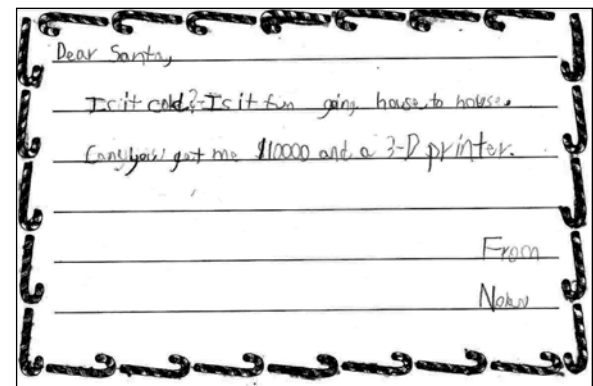 Dear Santa,
Is it cold? Is it fun going house to house.
Can you get me $10000 and a 3-D printer.
From